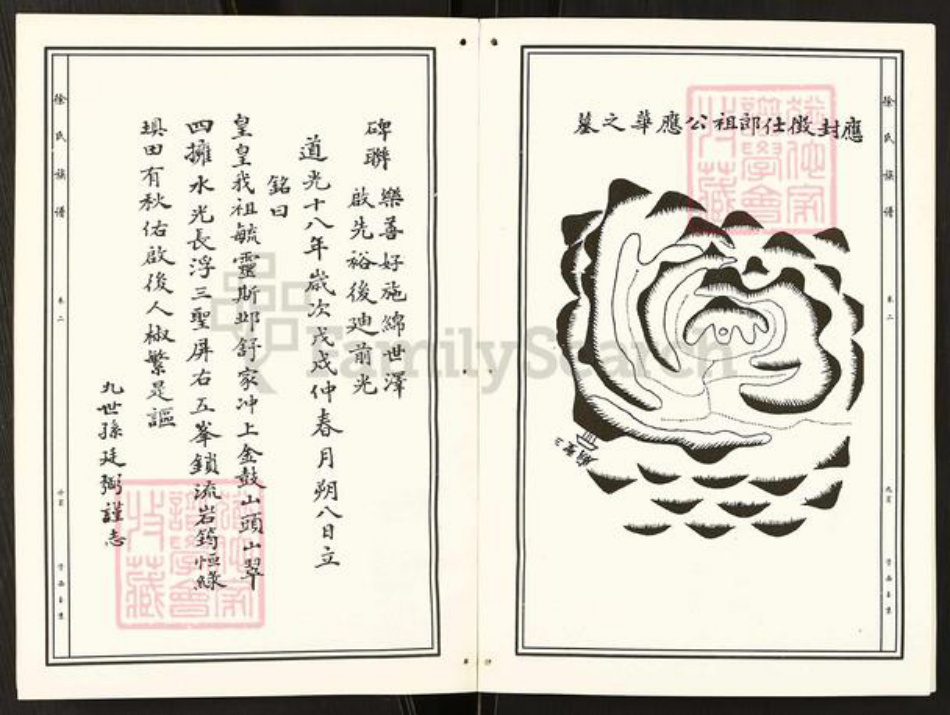 應封徵仕郎祖公應華之墓
三聖廟
徐氏族譜
卷二
碑聯
樂善好施綿世澤
啟先裕後廸前光
道光十八年歲次戊戌仲春月朔八日立
銘曰
皇皇我祖毓靈斯邺舒家冲上金鼓山頭山翠
四擁水光長浮三聖屏右五峯鎖流岩筠恒綠
埧田有秋佑啟後人椒繁是謳
九世孫廷弼謹志
徐氏族譜
卷二
FamilySearch